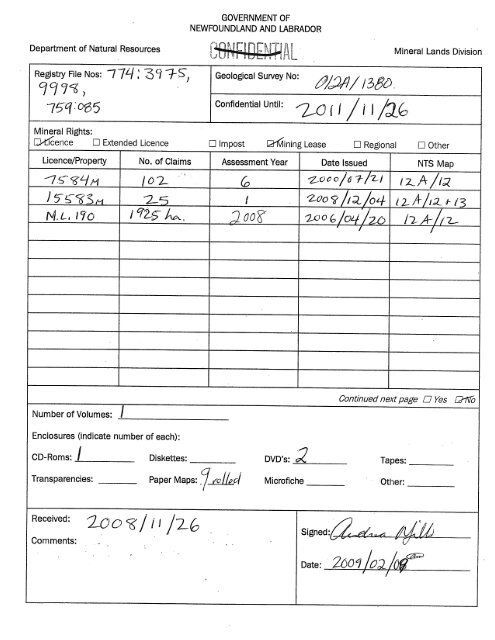 GOVERNMENT OF
NEWFOUNDLAND AND LABRADOR
Department of Natural Resources CONFIDENTIAL Mineral Lands Division
Registry File Nos: 774:3975,
9998,
759:085
Geological Survey No: 012A/1380
Confidential Until: 2011/11/26
Mineral Rights:
Licence Extended Licence Impost Mining Lease Regional Other
Licence/Property No. of Claims Assessment Year Date Issued NTS Map
7584M 102 6 2000/07/21 12A/12
15583M 25 1 2008/12/04 12A/12+13
M.L. 190 1925 ha. 2008 2006/04/20 12A/12
Continued next page Yes No
Number of Volumes: 1
Enclosures (indicate number of each):
CD-Roms: 1 Diskettes: DVD's: 2 Tapes:
Transparencies: Paper Maps: 9 rolled Microfiche Other:
Received: 2008/11/26
Comments:
Signed: Andrea Mills
Date: 2009/02/